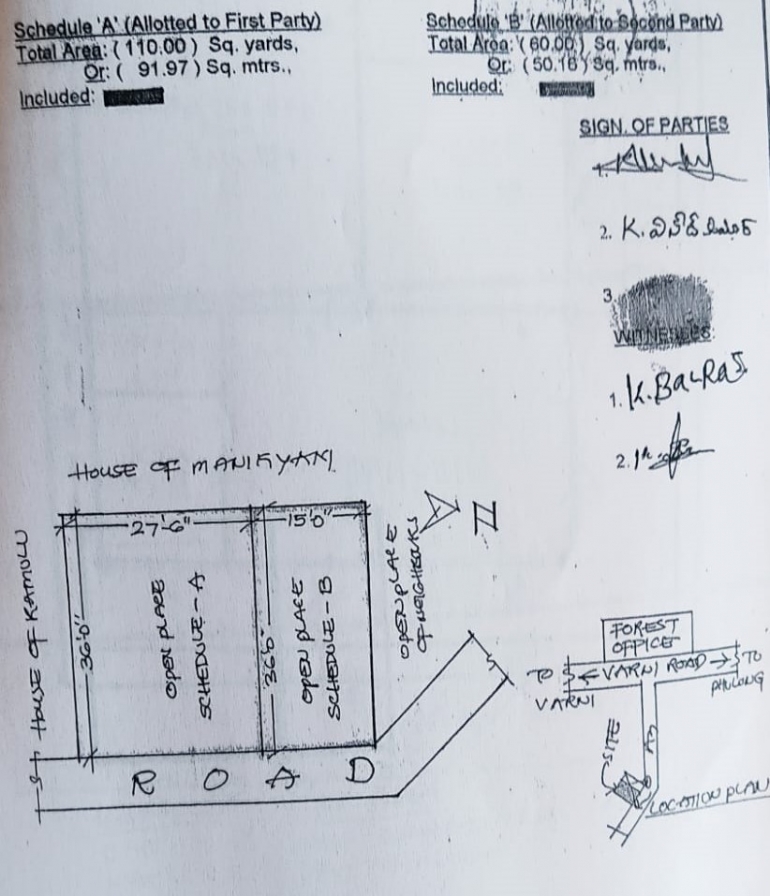 Schedule 'A' (Allotted to First Party)
Total Area: (110.00) Sq. yards,
Or: ( 91.97 ) Sq. mtrs.,
Included:
Schedule 'B' (Allotted to Second Party)
Total Area: (60.00) Sq. yards,
Or: (50.16) Sq. mtrs.,
Included:
SIGN. OF PARTIES
1.
2. K.
3.
WITNESSES:
1. K. BaLRaJ
2.
HOUSE OF MANIKYAM
27'-6"
15'0"
HOUSE OF KAMOLU
36'0"
OPEN PLACE
SCHEDULE-A
36'0"
OPEN PLACE
SCHEDULE-B
OPEN PLACE
OF NEIGHBOURS
N
ROAD
FOREST
OFFICE
TO
VARNI
← VARNI ROAD →
TO
PHULONG
SITE
LOCATION PLAN